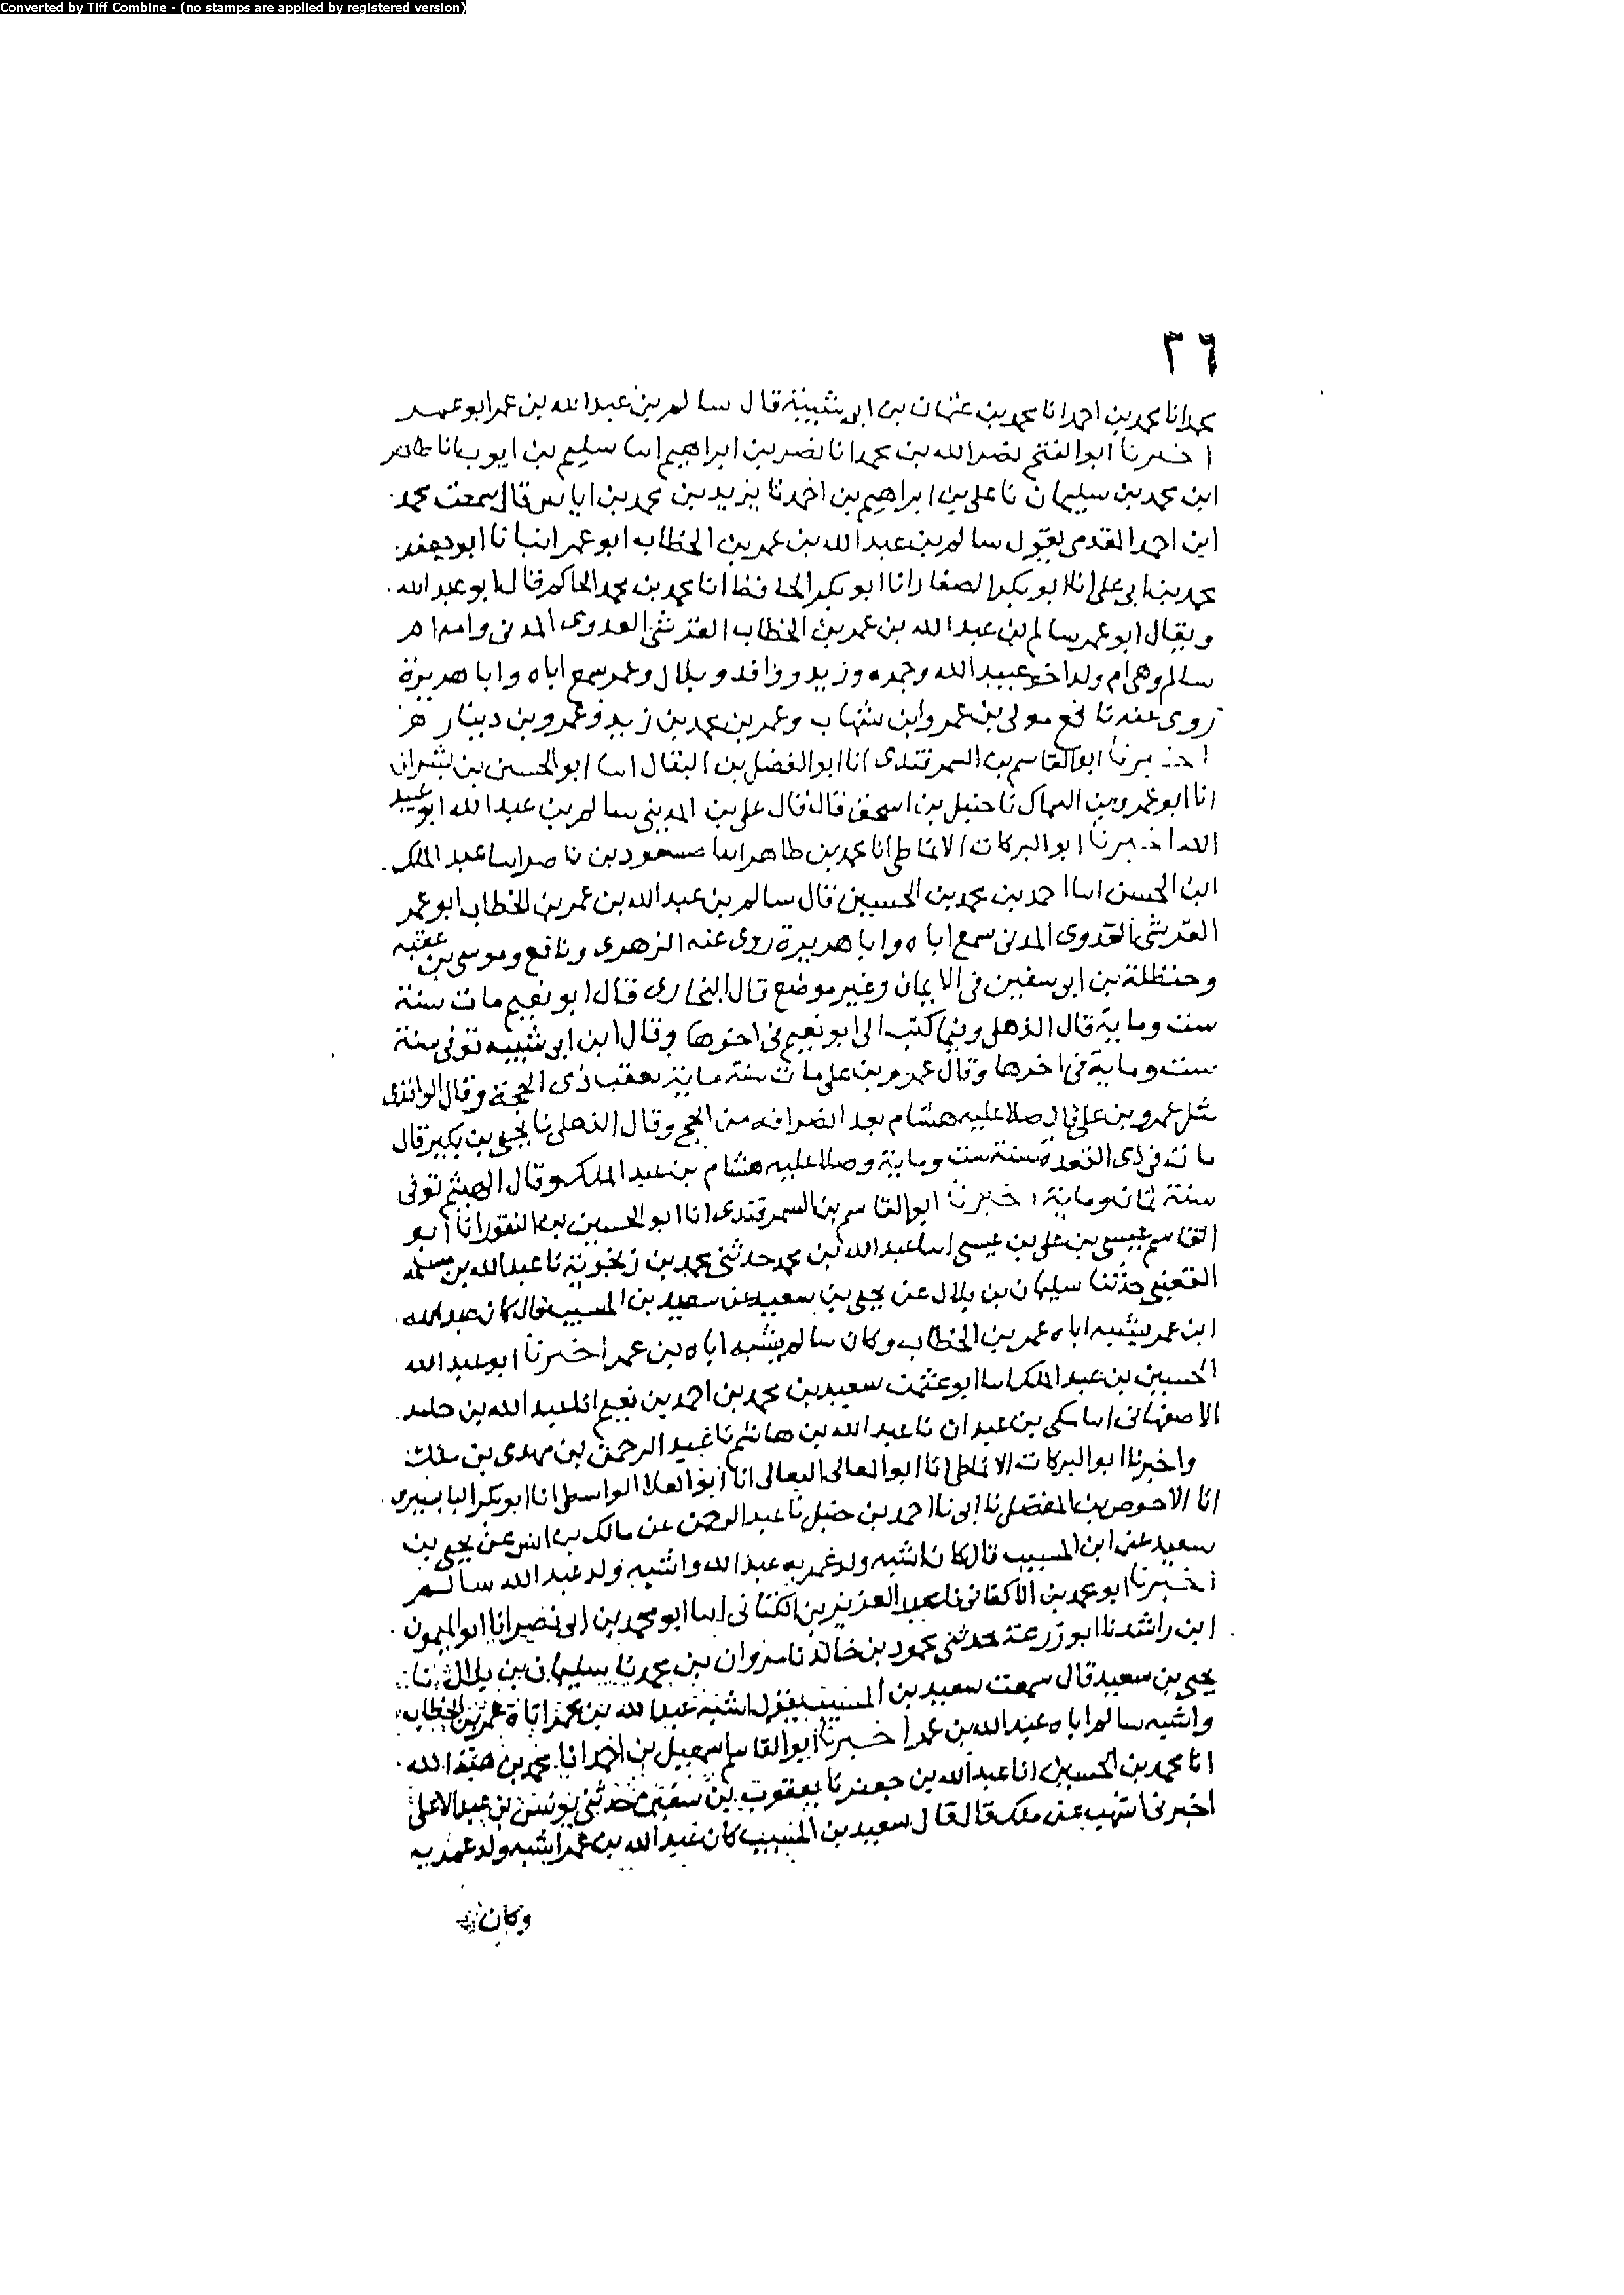 Converted by Tiff Combine - (no stamps are applied by registered version)
٣٦
محمد انا محمد بن احمد انا محمد بن عثمان بن ابى شيبة قال سالم بن عبد الله بن عمر ابو عمر
اخبرنا ابو الفتح نصر الله بن محمد انا نصر بن ابراهيم انا سليم بن ايوب انا طاهر
ابن محمد بن سليمان نا على بن ابراهيم بن احمد نا يزيد بن محمد بن اياس قال سمعت محمد
ابن احمد المقدمى يقول سالم بن عبد الله بن عمر بن الخطاب ابو عمر انبانا ابو جعفر
محمد بن ابى على انا ابو بكر الصفار انا ابو بكر الحافظ انا محمد بن محمد الحاكم قال ابو عبد الله
ويقال ابو عمر سالم بن عبد الله بن عمر بن الخطاب القرشى العدوى المدنى وامه ام
سالم وهى ام ولد اخو عبيد الله وحمزه وزيد وواقد وبلال وعمر سمع اباه وابا هريرة
روى عنه نافع مولى بن عمر وابن شهاب وعمر بن محمد بن زيد وعمرو بن دينار
اخبرنا ابو القاسم بن السمرقندى انا ابو الفضل بن البقال انا ابو الحسين بن بشران
انا ابو عمرو بن السماك نا حنبل بن اسحق قال قال على بن المدينى سالم بن عبد الله ابو عبيد
الله اخبرنا ابو البركات الانماطى انا محمد بن طاهر انا مسعود بن ناصر انا عبد الملك
ابن الحسن انا احمد بن محمد بن الحسين قال سالم بن عبد الله بن عمر بن الخطاب ابو عمر
القرشى العدوى المدنى سمع اباه وابا هريرة روى عنه الزهرى ونافع وموسى بن عقبه
وحنظلة بن ابى سفين فى الايمان وغير موضع قال البخارى قال ابو نعيم مات سنة
ست وماية قال الذهلى وفيما كتب الى ابو نعيم فى اخرها وقال ابن ابى شيبه توفى سنة
ست وماية فى اخرها وقال عمرو بن على مات سنة ماية بعقب ذى الحجة وقال الواقدى
مثل عمرو بن على قال وصلا عليه هشام بعد انصرافه من الحج وقال الذهلى نا يحيى بن بكير قال
مات فى ذى القعدة سنة ست وماية وصلا عليه هشام بن عبد الملك وقال الهيثم توفى
سنة ثمان وماية اخبرنا ابو القاسم بن السمرقندى انا ابو الحسين بن النقور انا ابو
القاسم عيسى بن على بن عيسى انا عبد الله بن محمد حدثنى محمد بن زنجوية نا عبد الله بن مسلمه
القعنبى حدثنا سليمان بن بلال عن يحيى بن سعيد عن سعيد بن المسيب قال كان عبد الله
ابن عمر يشبه اباه عمر بن الخطاب وكان سالم يشبه اباه بن عمر اخبرنا ابو عبد الله
الحسين بن عبد الملك انا ابو عثمن سعيد بن محمد بن احمد بن نعيم انا عبد الله بن حامد
الاصفهانى انا مكى بن عبدان نا عبد الله بن هاشم نا عبد الرحمن بن مهدى بن ملك
واخبرنا ابو البركات الانماطى انا ابو المعالى البقالى انا ابو العلا الواسطى انا ابو بكر البابسيرى
انا الاحوص بن المفضل نا ابى نا احمد بن حنبل نا عبد الرحمن عن مالك بن انس عن يحيى بن
سعيد عن ابن المسيب قال كان اشبه ولد عمر به عبد الله واشبه ولد عبد الله سالم
اخبرنا ابو محمد بن الاكفانى نا عبد العزيز بن الكتانى انا ابو محمد بن ابى نصر انا ابو الميمون
ابن راشد نا ابو زرعة حدثنى محمود بن خالد نا مروان بن محمد نا سليمان بن بلال نا
يحيى بن سعيد قال سمعت سعيد بن المسيب يقول اشبه عبد الله بن عمر اباه عمر بن الخطاب
واشبه سالم اباه عبد الله بن عمر اخبرنا ابو القاسم اسمعيل بن احمد انا محمد بن هبة الله
انا محمد بن الحسين انا عبد الله بن جعفر نا يعقوب بن سفين حدثنى يونس بن عبد الاعلى
اخبرنا اشهب عن ملك قال قال سعيد بن المسيب كان عبد الله بن عمر اشبه ولد عمر به
وكان